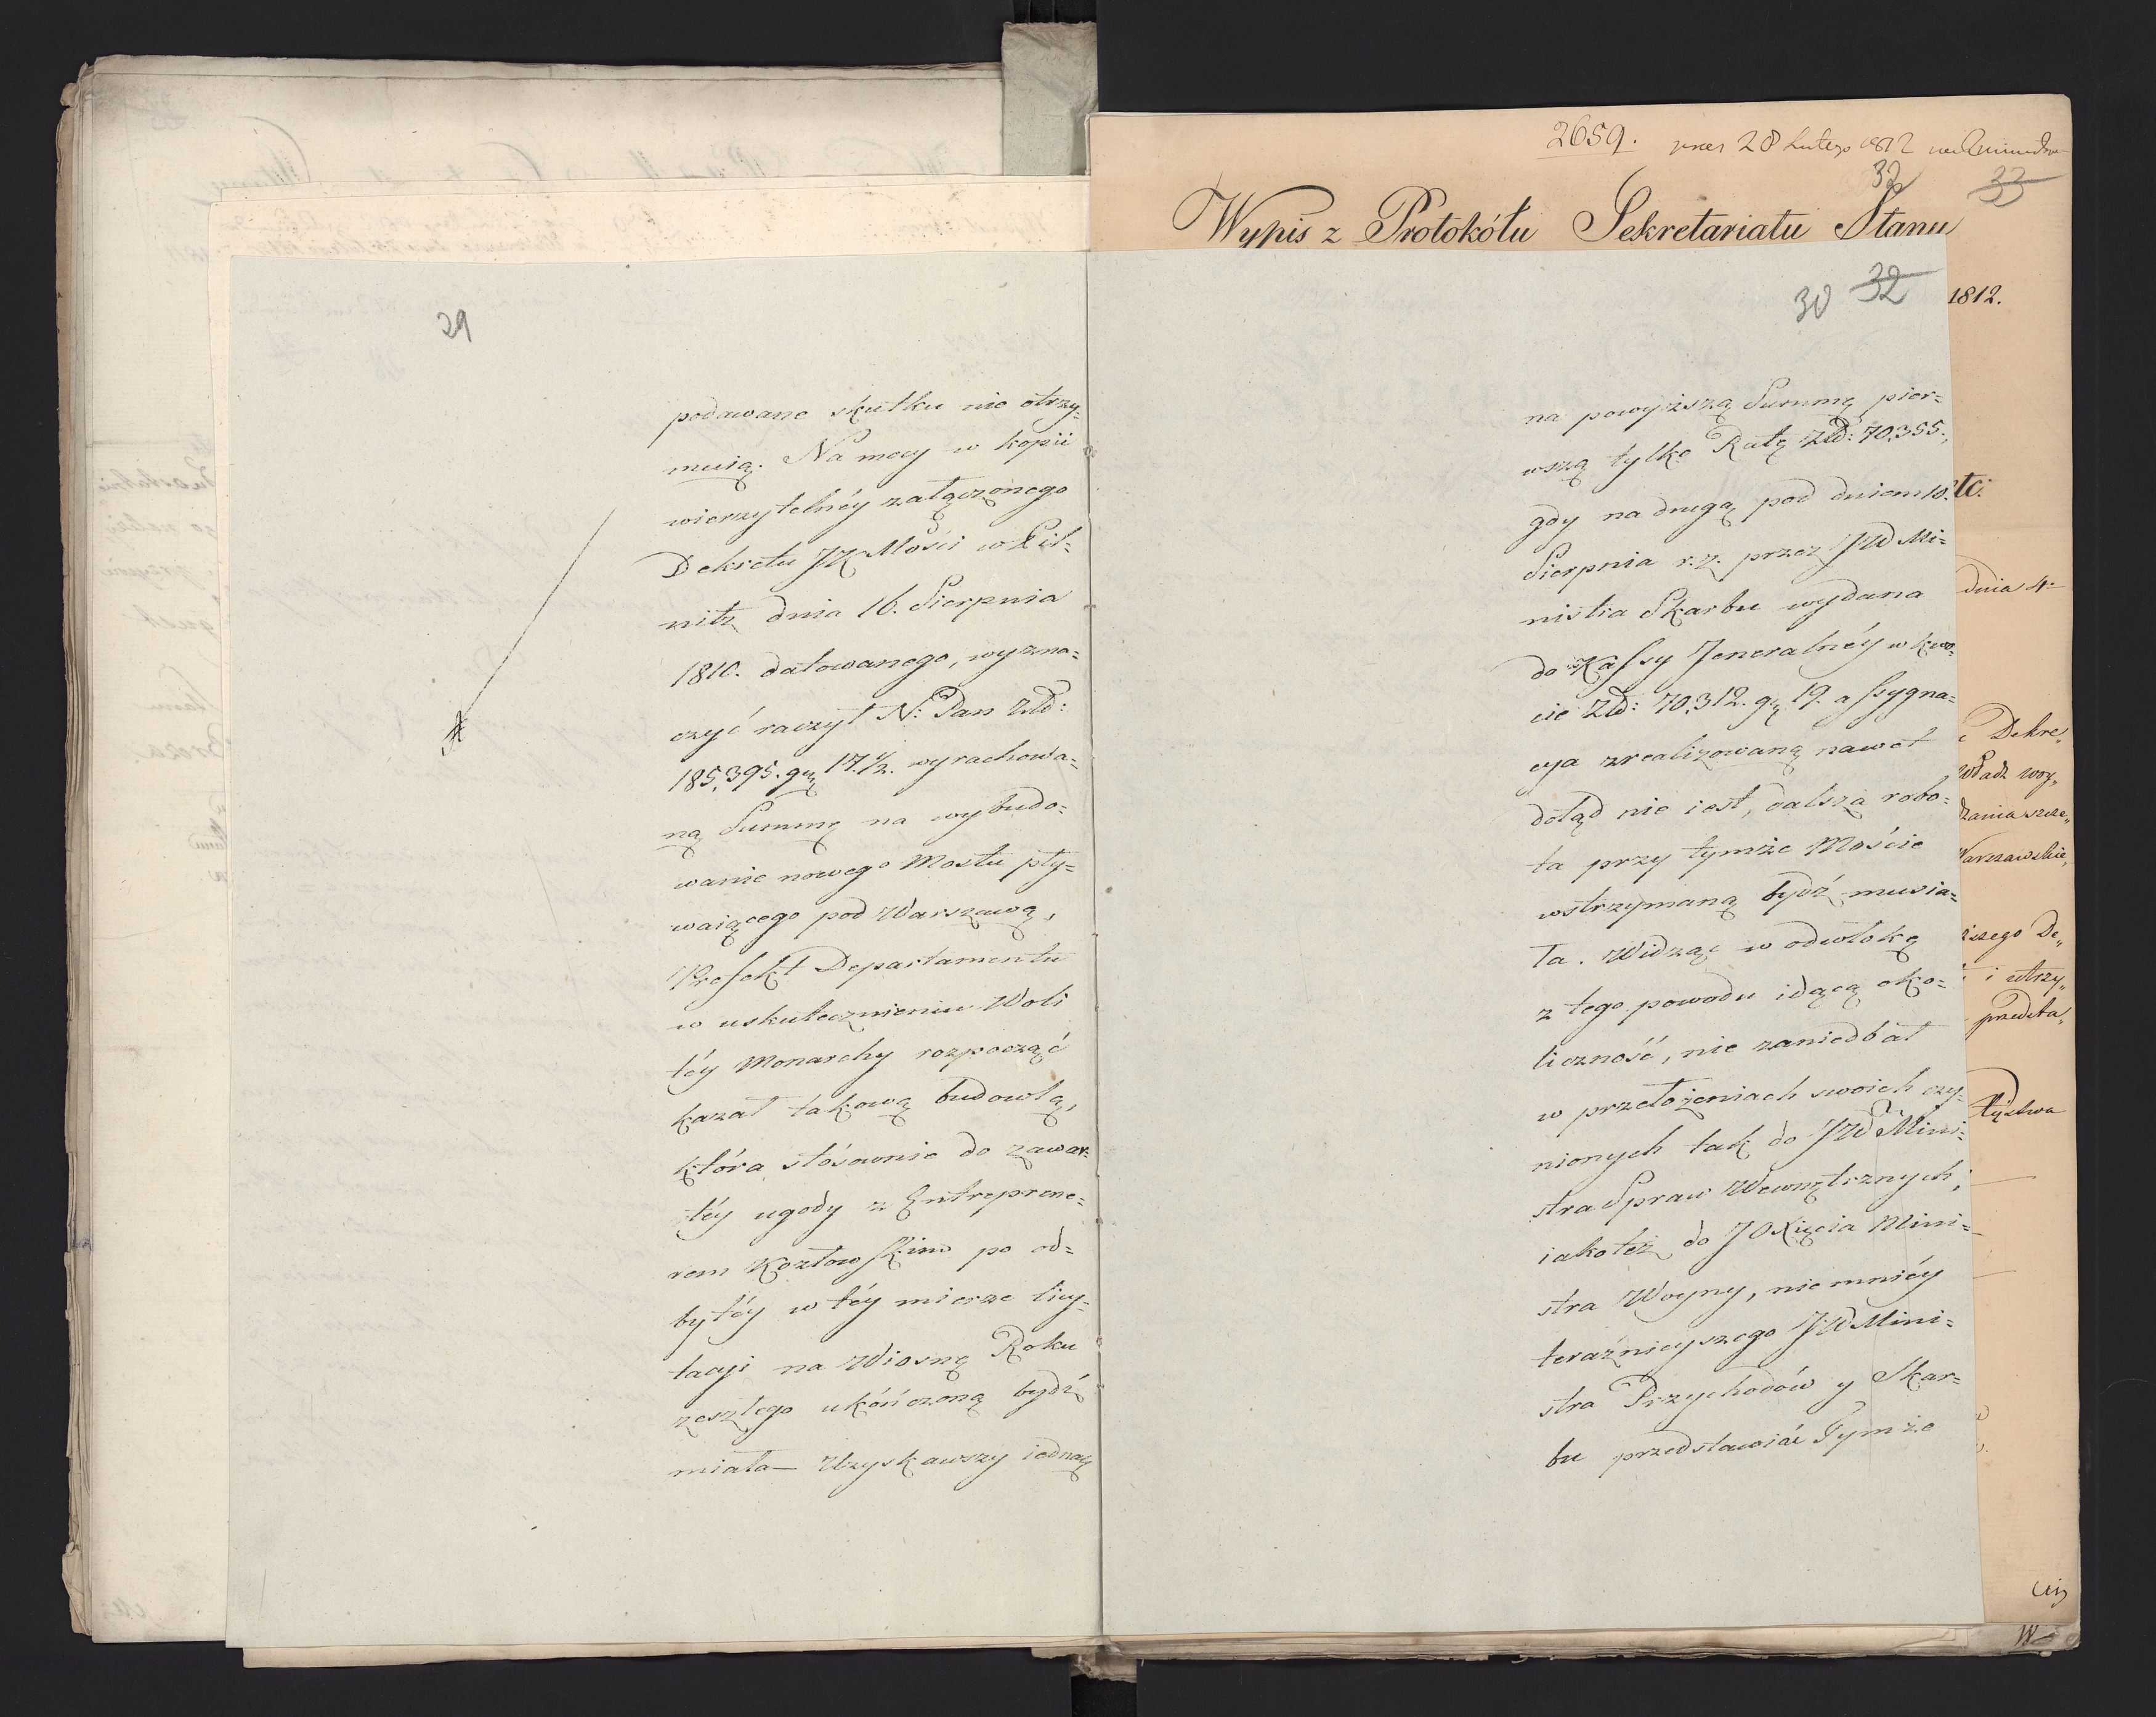 29
podawane skutku nie otrzy=
muią. Na mocy w kopii
wierzytelnéy załączonego
Dekretu JKMości w Pil=
nitz dnia 16. Sierpnia
1810. datowanego, wyzna=
czyć raczył N: Pan Złd:
185,395. gr 17.1/2. wyrachowa=
ną Summę na wybudo=
wanie nowego Mostu pły=
waiącego pod Warszawą,
Prefekt Departamentu
w uskutecznieniu Woli
téy Monarchy rozpocząć
kazał takową budowlą,
która stósownie do zawar=
téy ugody z Entreprene=
rem Kozłowskim po od=
bytéy w téy mierze licy=
tacyi na Wiosnę Roku
zeszłego ukończoną bydź
miała— Uzyskawszy iednak
2659. 28 Lutego 1812
32 33
Wypis z Protokółu Sekretariatu Stanu
30 32
1812.
na powyższą Summę pier=
wszą tylko Ratę Złd: 70,355.,
gdy na drugą pod dniem 18.
Sierpnia r. z. przez JW Mi=
nistra Skarbu wydana
do Kassy Jeneralnéy w kwo=
cie Złd: 70,312. gr 19. assygna=
cya zrealizowaną nawet
dotąd nie iest, dalsza robo=
ta przy tymże Moście
wstrzymaną bydź musia=
ła. Widząc w odwłokę
z tego powodu idącą oko=
liczność, nie zaniedbał
w przełożeniach swoich czy=
nionych tak do JW Mini=
stra Spraw Wewnętrznych,
iakoteż do JO Xięcia Mini=
stra Woyny, niemniéy
teraźnieyszego JW Mini=
stra Przychodów y Skar=
bu przedstawiać Tymże
tc:
dnia 4
Dekre„
Władz woy„
dzania szcze„
Warszawskie„
szego De„
i utrzy„
przedsta„